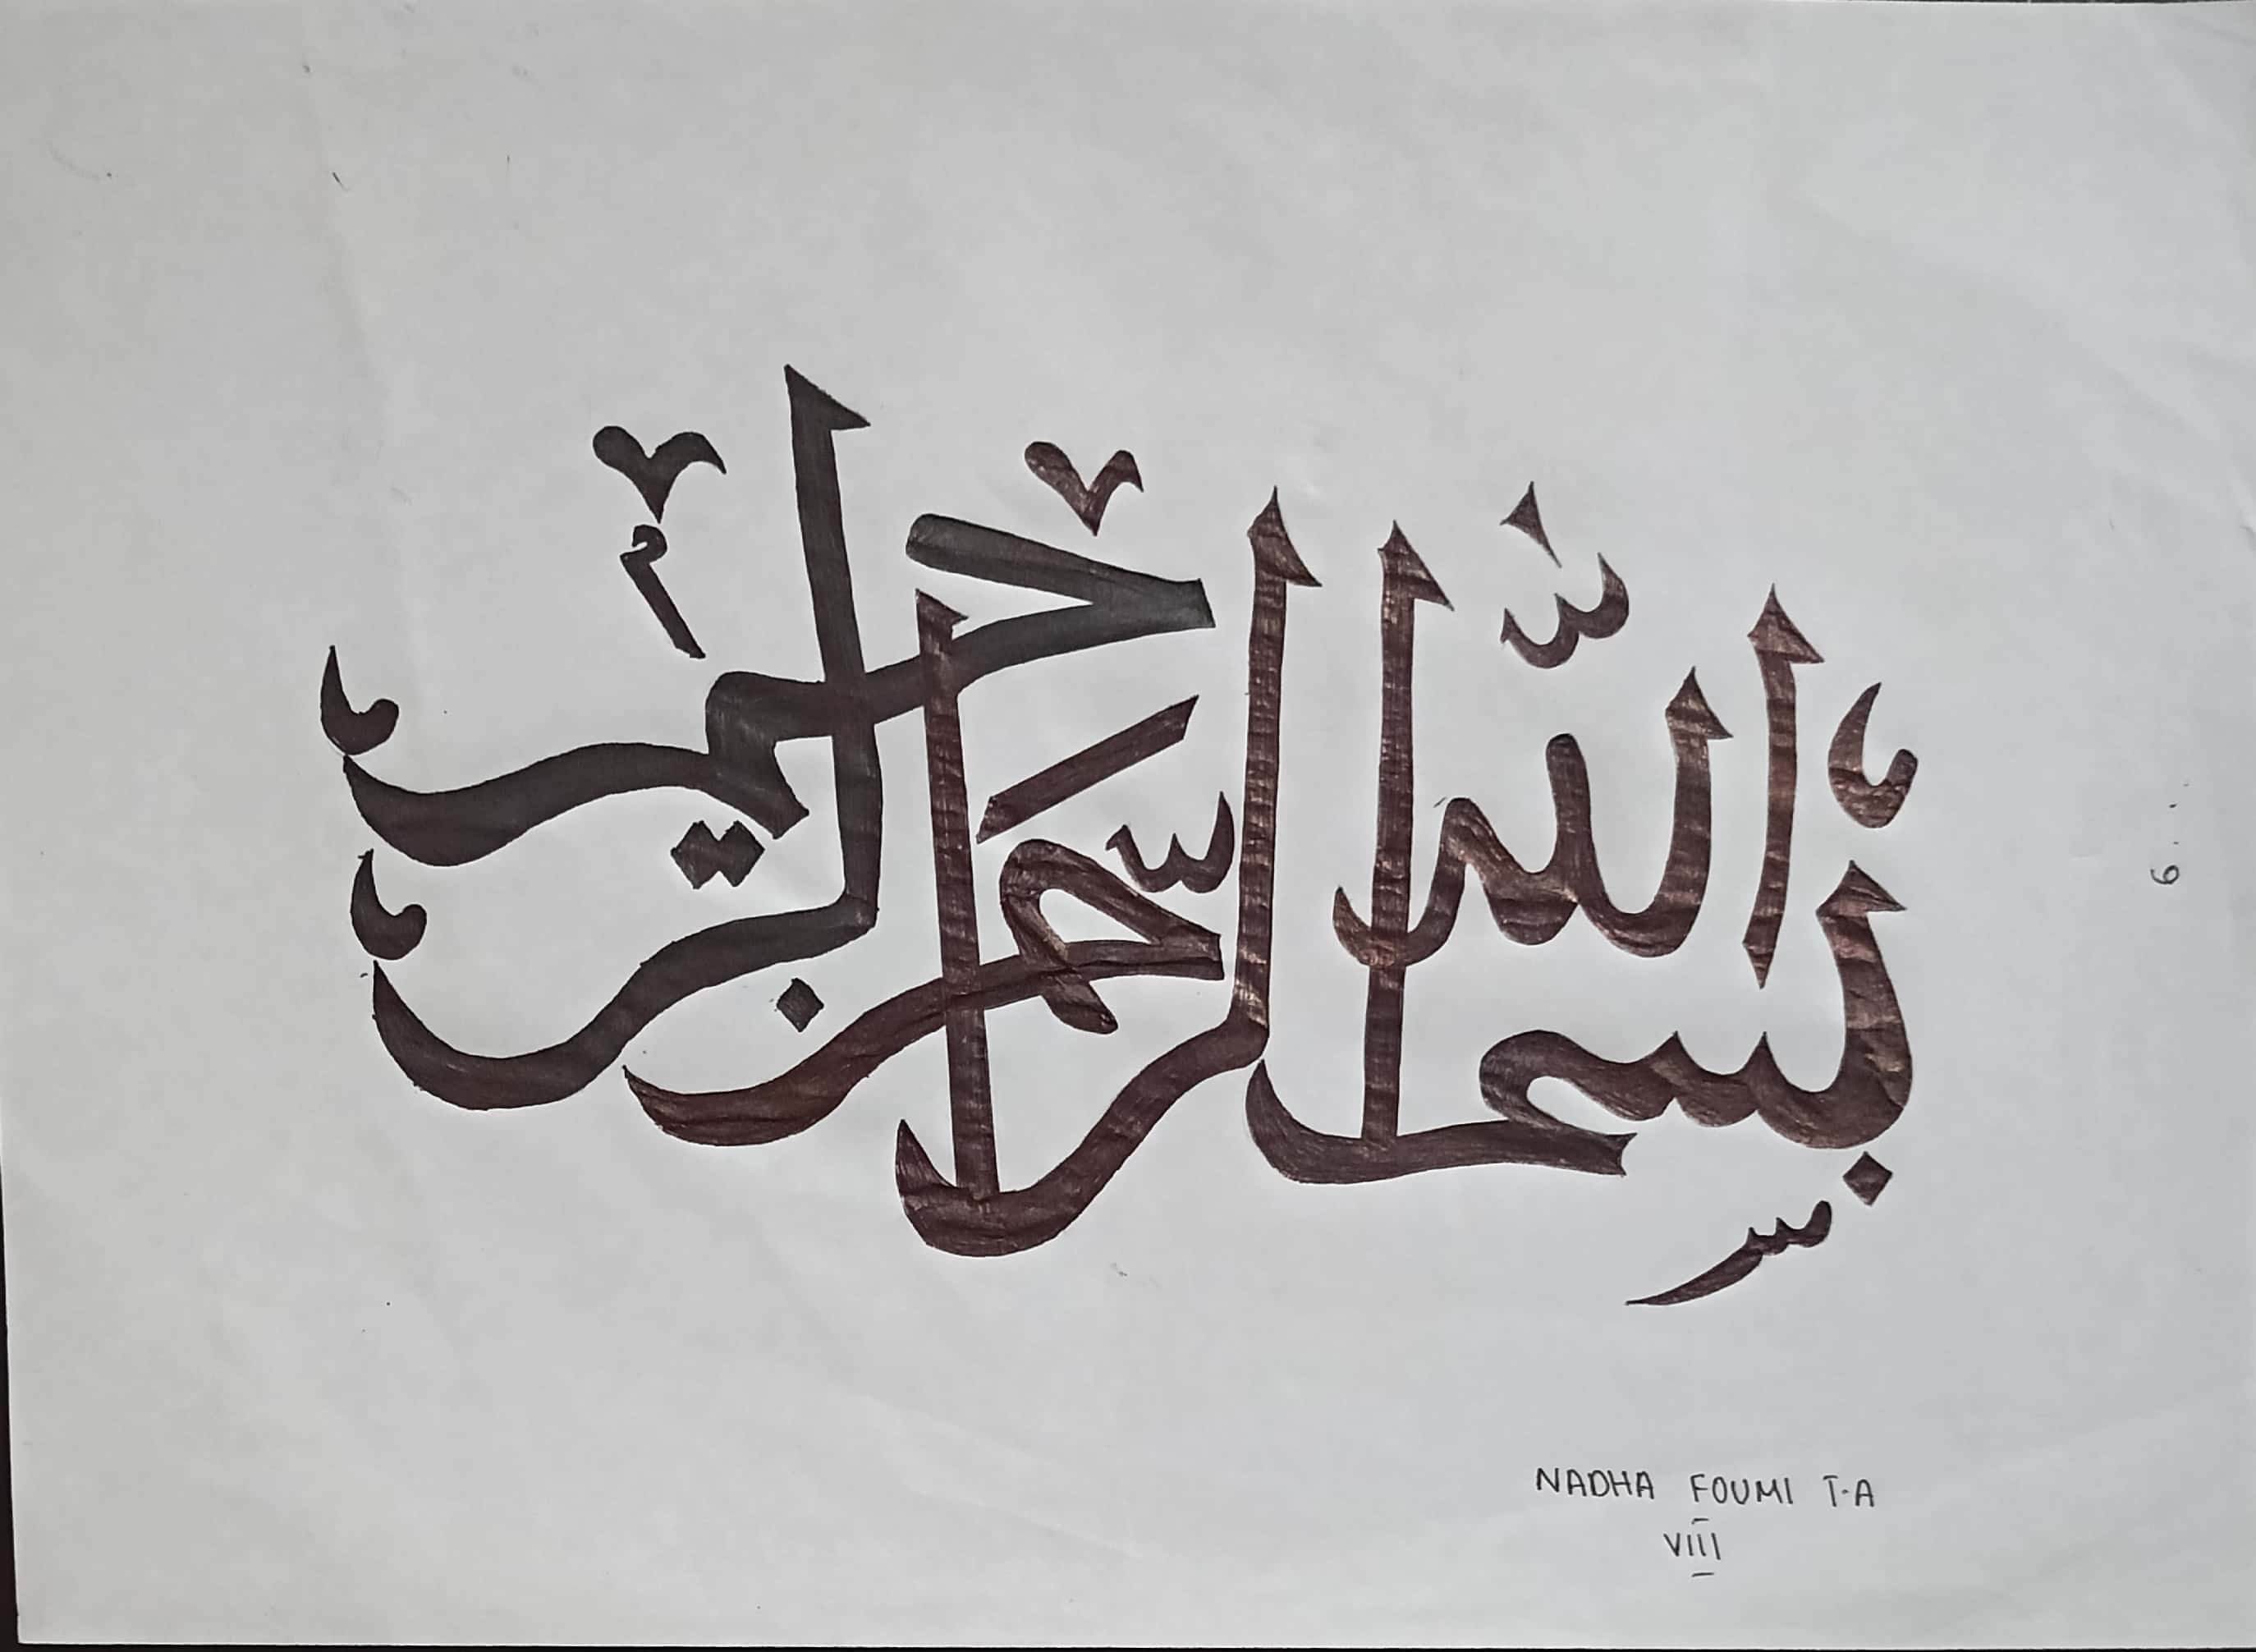 بسم الله الرحمن الرحيم
NADHA FOUMI T.A
VIII